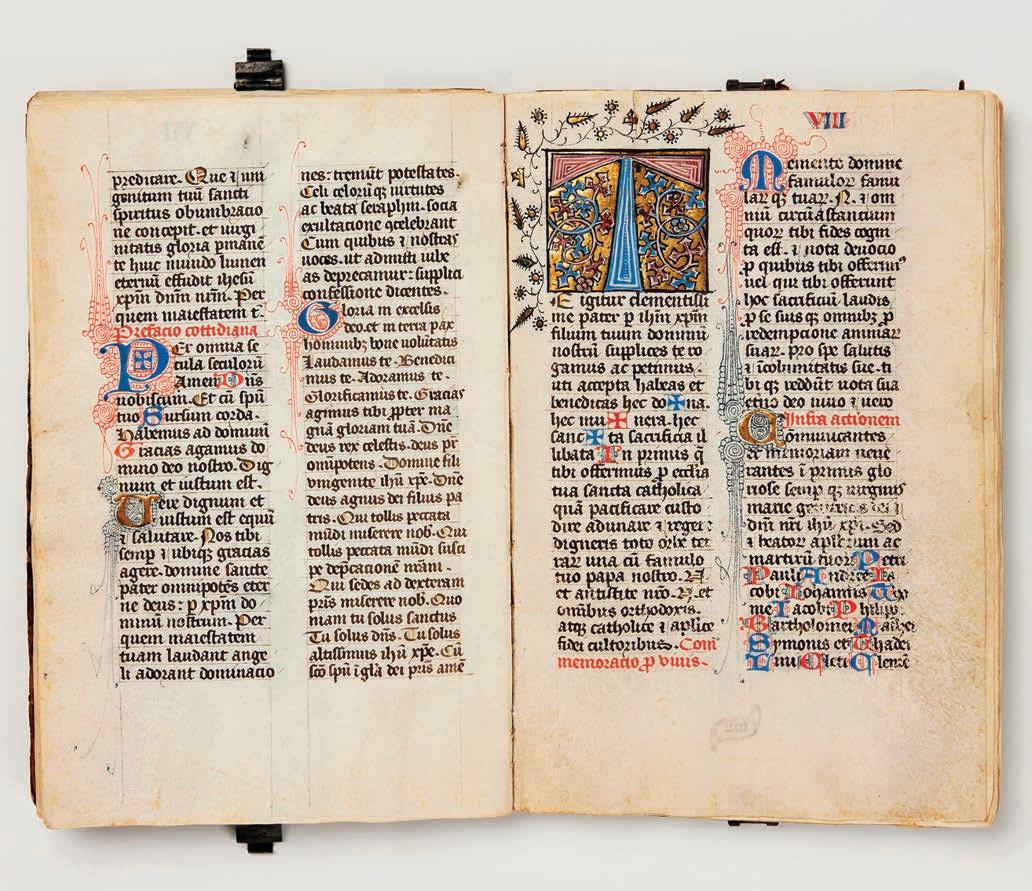 predicare. Que ⁊ uni
genitum tuū sancti
spiritus obumbracio
ne concepit. et uirgi
nitatis gloria ꝑmanē
te huic mundo lumen
eternū effudit ihesū
xp̄m dn̄m nr̄m. Per
quem maiestatem t.
Prefacio cottidiana
Per omnia se
cula seculorū
Amen. Dn̄s
uobiscum. Et cū spū
tuo Sursum corda.
Habemus ad domini
Gracias agamus do
mino deo nostro. Dig
num et iustum est.
Vere dignum et
iustum est equū
⁊ salutare. Nos tibi
semꝑ ⁊ ubiqꝫ gracias
agere. domine sancte
pater omnipotēs eter
ne deus: ꝑ xp̄m do
minū nostrum. Per
quem maiestatem
tuam laudant ange
li adorant dominacio
nes: tremūt potestates.
Celi celorūqꝫ uirtutes
ac beata seraphin. socia
exultacione ꝯcelebrant
Cum quibus ⁊ nostras
uoces. ut admitti iube
as deprecamur: supplici
confessione dicentes.
Gloria in excelsis
deo. et in terra pax
hominibꝫ bone uolūtatis
Laudamus te. Benedici
mus te. Adoramus te.
Glorificamus te. Gracias
agimus tibi ꝓpter ma
gnā gloriam tuā. Dn̄e
deus rex celestis. deus pr̄
omīpotens. Domine fili
unigenite ihū xp̄e. Dn̄e
deus agnus dei filius pa
tris. Qui tollis peccata
mūdi miserere nob. Qui
tollis peccata mūdi susci
pe dep̄cationē nr̄am.
Qui sedes ad dexteram
pr̄is miserere nob. Quo
niam tu solus sanctus
Tu solus dn̄s. Tu solus
altissimus ihū xp̄e. Cū
sc̄o spū ī gl̄a dei pr̄is amē
VIII
TE igitur clementissi
me pater ꝑ ihm̄ xp̄m
filium tuum dominū
nostrū supplices te ro
gamus ac petimus.
uti accepta habeas et
benedicas hec do✠na.
hec mu✠nera. hec
sanc✠ta sacrificia il
libata In primus q̄
tibi offerimus ꝑ ecc̄ia
tua sancta catholica
quā pacificare custo
dire adunare ⁊ regere
digneris toto orbe ter
rar̄ una cū famulo
tuo papa nostro. N.
et antistite nr̄o. N. et
omībus orthodoxis.
atqꝫ catholice ⁊ aplice
fidei cultoribus. Com
memoracio ꝑ uiuis.
Memento domine
famulorꝝ famu
larꝝqꝫ tuarꝝ. N. ⁊ om
niū circūastancium
quorꝝ tibi fides cogni
ta est. ⁊ nota deuocio
ꝑ quibus tibi offerimꝰ
uel qui tibi offerunt
hoc sacrificiū laudis.
ꝑ se suis qꝫ omnibꝫ ꝑ
redempcione animarꝝ
suarꝝ. pro spe salutis
⁊ īcolumitatis sue. ti
bi qꝫ reddūt uota sua
etn̄o deo uiuo ⁊ uero
Infra actionem
Cōmunicantes
et memoriam uene
rantes ī primis glo
riose semꝑ qꝫ uirginis
marie genitricis dei ⁊
dn̄i nr̄i ihū xp̄i. Sed
⁊ beatorꝝ apl̄orum ac
martirū tuorꝝ Petri
Pauli Andree Ia
cobi Iohannis
me Iacobi Philip
Bartholomei Mathei
Symonis et Thadei
Lini Cleti Clemē